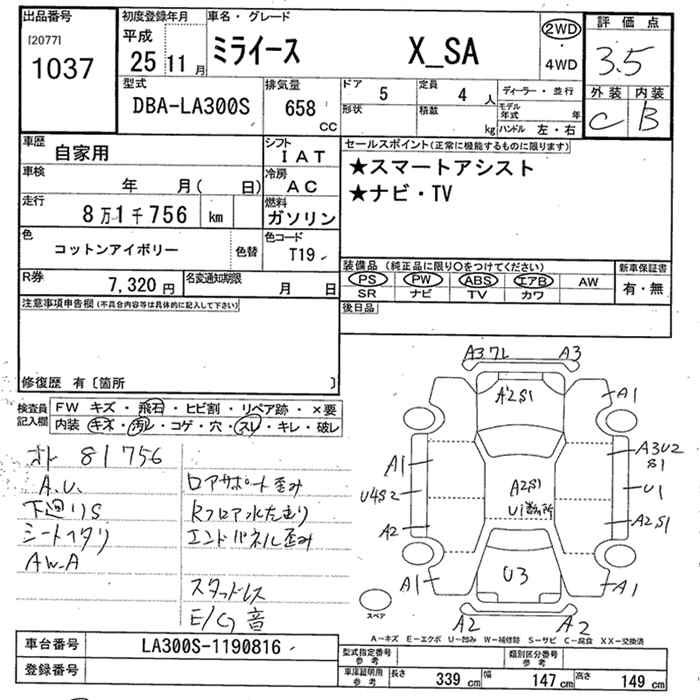 出品番号 初度登録年月 車名・グレード 2WD 評価点
[2077] 平成 ・
1037 25 11月 ミライース X_SA 4WD 3.5
型式 排気量 ドア 5 定員 4人 ディーラー・並行 外装 内装
DBA-LA300S 658 CC 形状 積載 kg モデル年式 年 C B
ハンドル 左・右
車歴 自家用 シフト IAT セールスポイント(正常に機能するものに限ります)
車検 年 月( 日) 冷房 AC ★スマートアシスト
走行 8万1千756 km 燃料 ガソリン ★ナビ・TV
色 コットンアイボリー 色替 色コード T19
R券 7,320円 名変通知期限 月 日 装備品(純正品に限り○をつけてください) 新車保証書
PS PW ABS エアB AW 有・無
SR ナビ TV カワ
注意事項申告欄(不具合内容等は具体的に記入して下さい) 後日品
修復歴 有〔箇所 〕
検査員記入欄 FW キズ・飛石・ヒビ割・リペア跡・×要
内装・キズ・汚レ・コゲ・穴・スレ・キレ・破レ
A3 7L A3
A2S1
A1 A1
A3U2
S1
U4S2 A2S1 U1
U1数ヶ所
A2 A2S1
A1 U3 A1
スペア A2 A2
オト 81756
A.U. ロアサポート歪み
下廻りS Rフロア水たまり
シートヘタリ エンドパネル歪み
AW-A
スタッドレス
E/G音
A-キズ E-エクボ U-凹み W-補修跡 S-サビ C-腐食 XX-交換済
車台番号 LA300S-1190816 型式指定番号参考 類別区分番号参考
登録番号 車庫証明用参考 長さ 339cm 幅 147cm 高さ 149cm